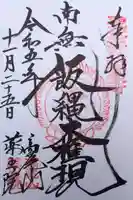 奉拝
南無飯縄大権現
令和五年
十一月二十五日
高尾山
薬王院